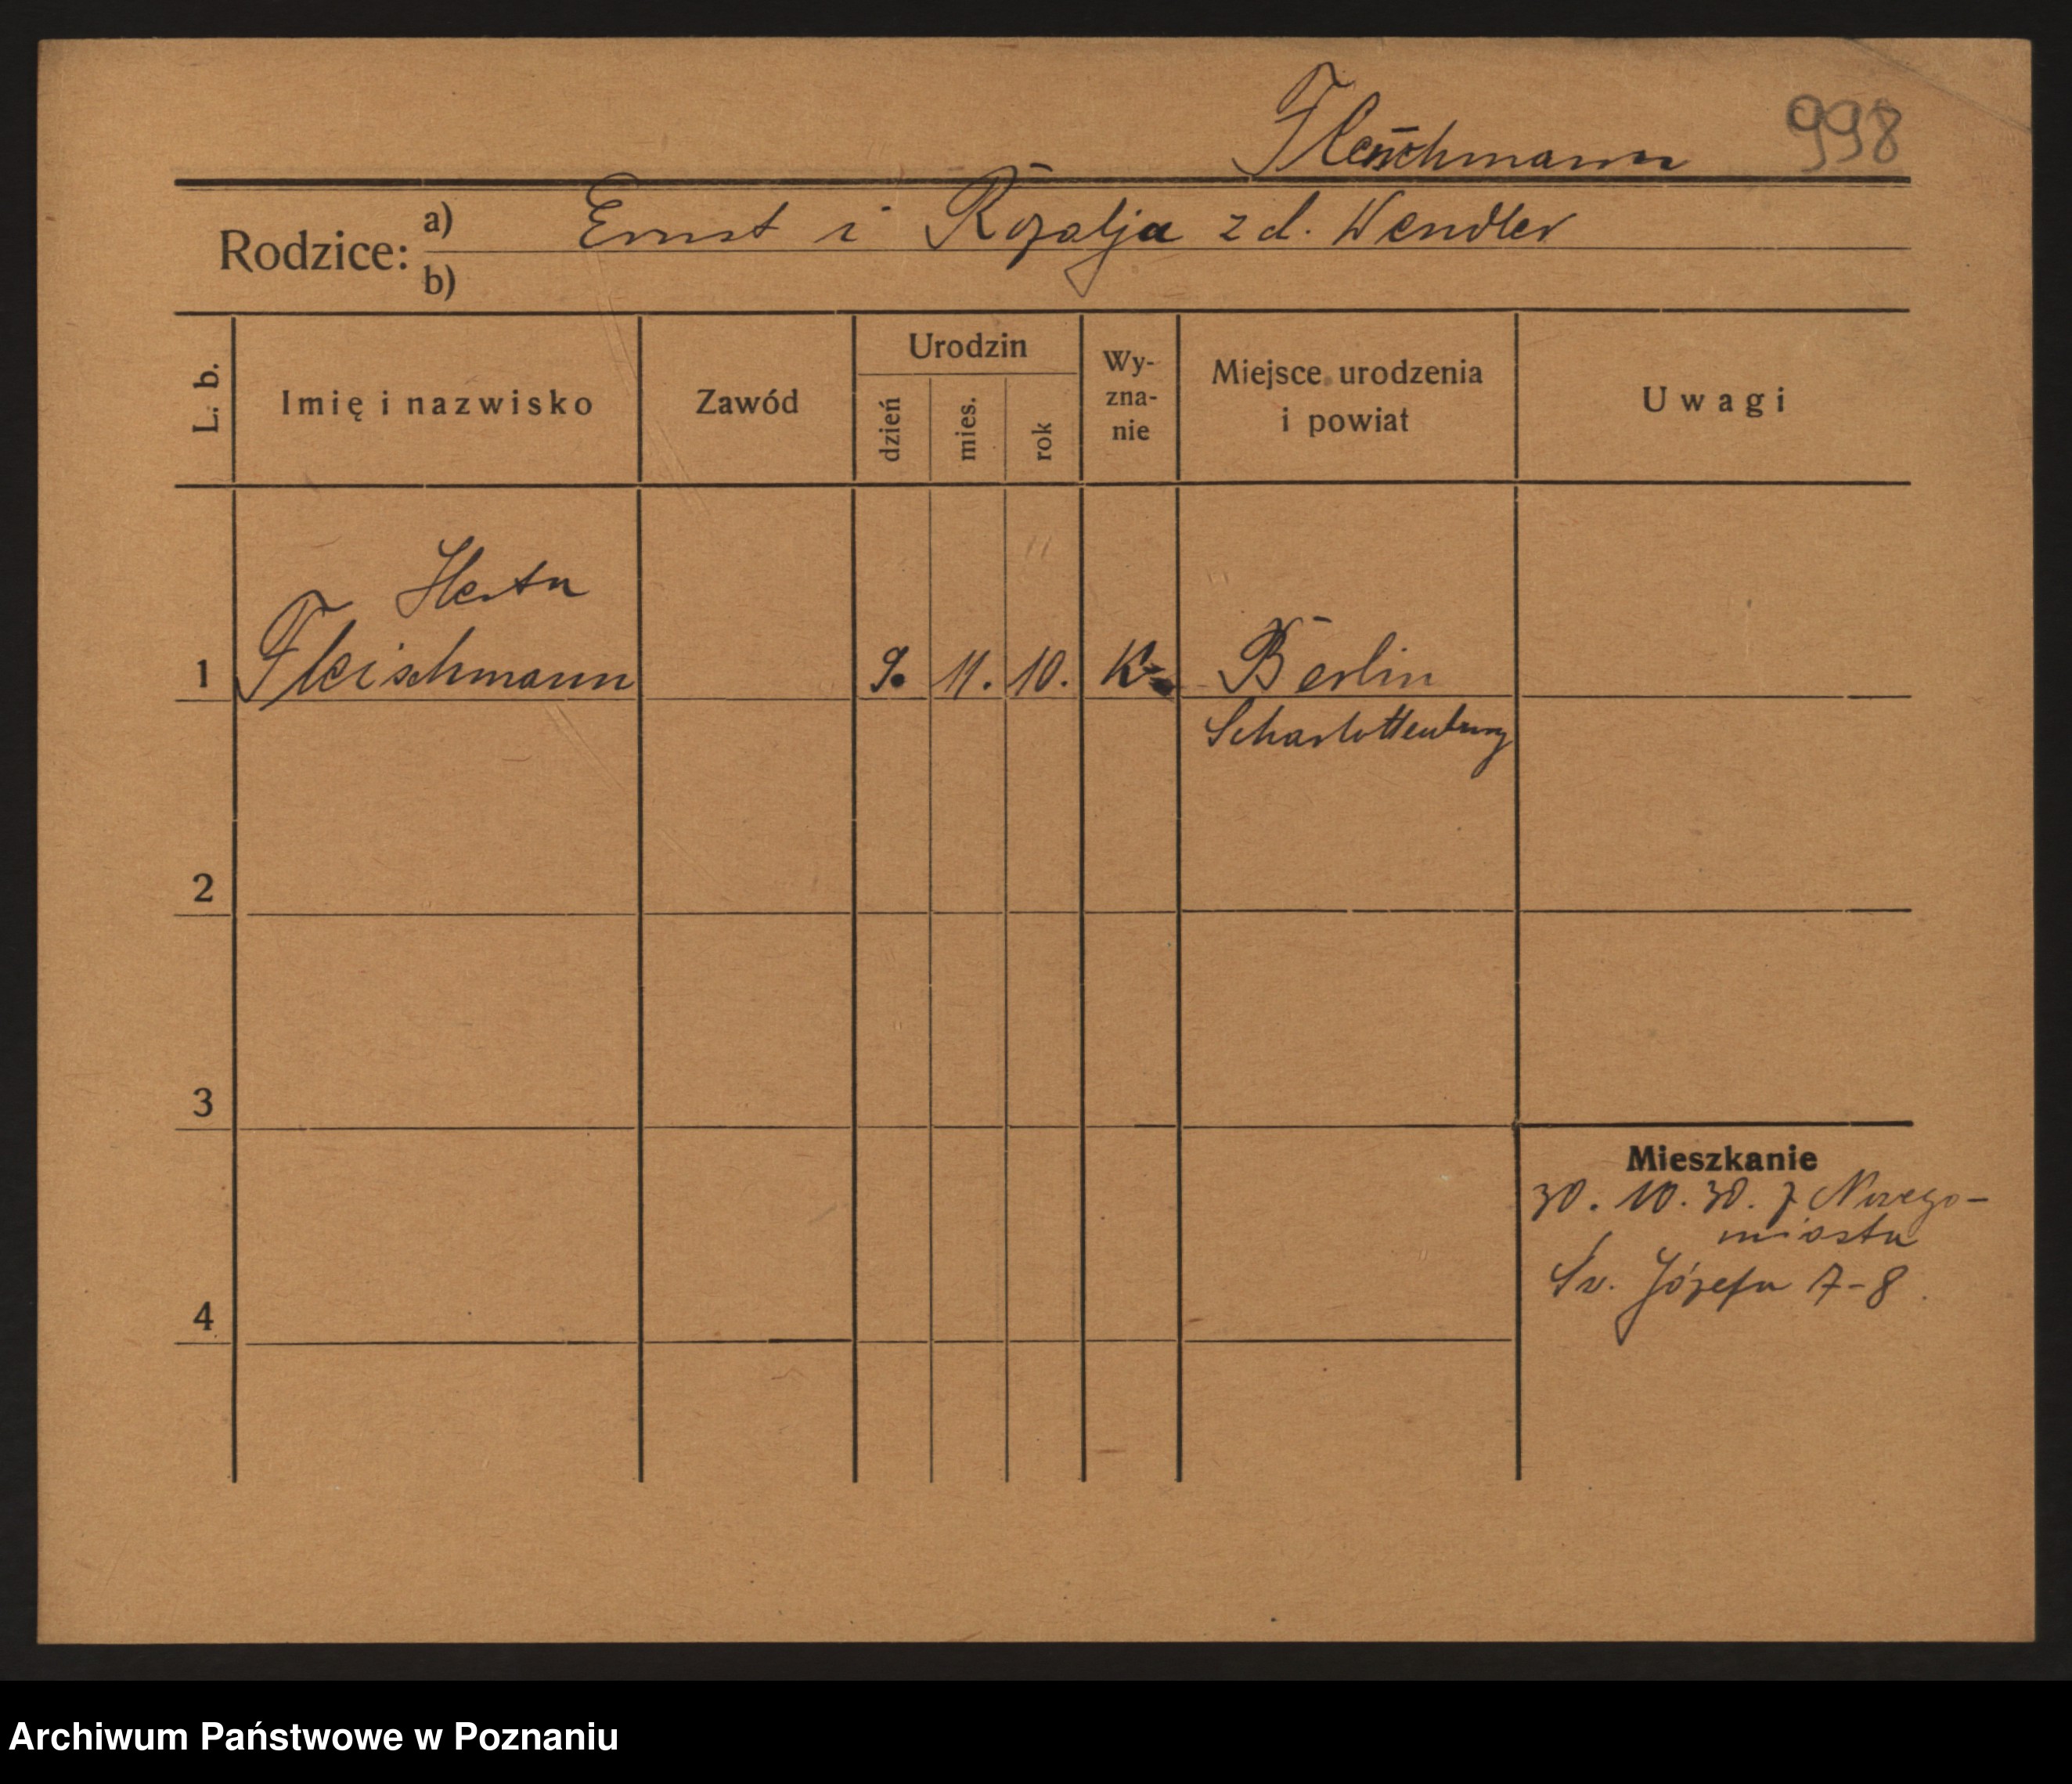 Fleischmann 998
Rodzice: a) Ernst i Rozalja z d. Wendler
b)
L. b. Imię i nazwisko Zawód Urodzin dzień mies. rok Wy-zna-nie Miejsce urodzenia i powiat Uwagi
Herta
1 Fleischmann 9. 11. 10. K. Berlin
Scharlottenburg
2
3
Mieszkanie
30. 10. 30. z Nowego-
miasta
Św. Józefa 7-8.
4
Archiwum Państwowe w Poznaniu